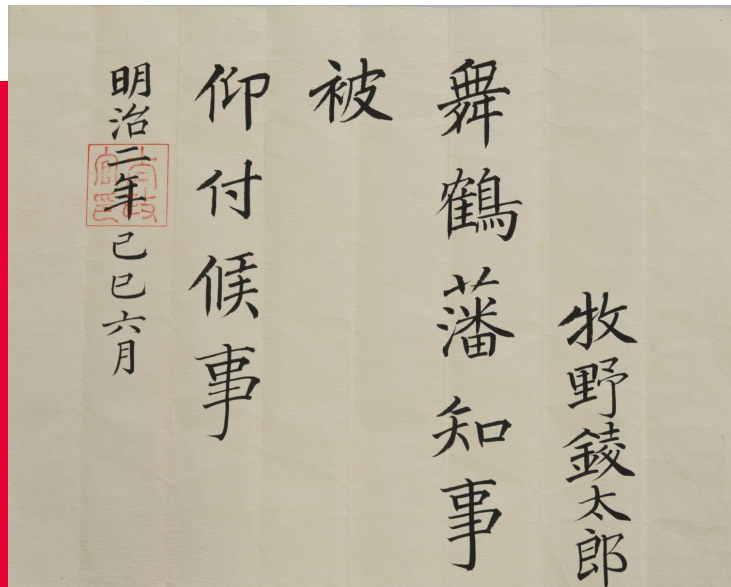 牧野錂太郎
舞鶴藩知事
被
仰付候事
明治二年己巳六月
太政官印